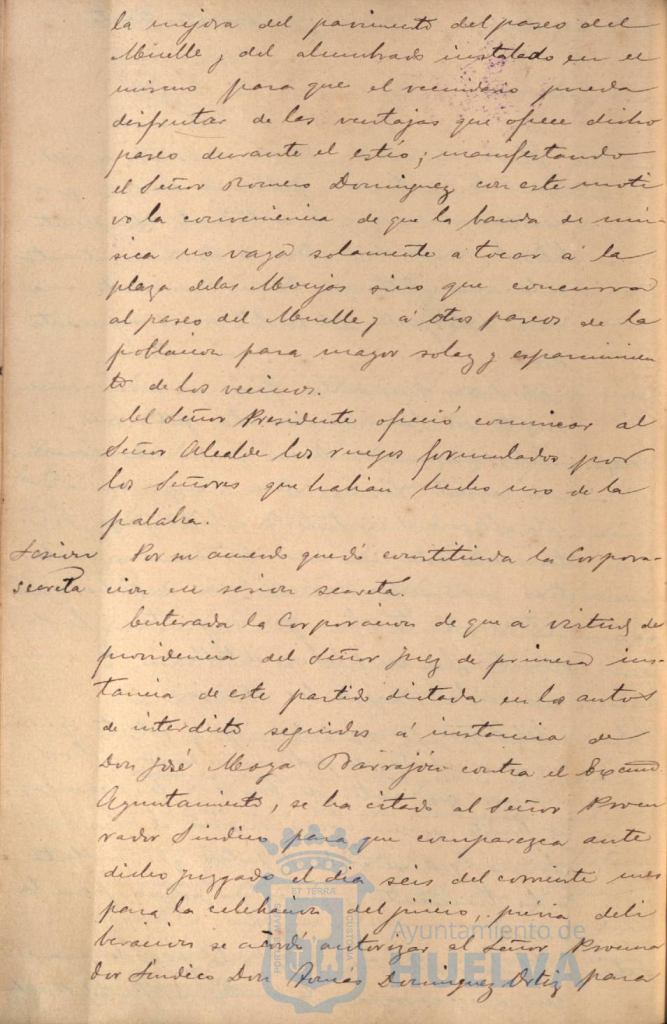 la mejora del pavimento del paseo del
Muelle y del alumbrado instalado en el
mismo para que el vecindario pueda
disfrutar de las ventajas que ofrece dicho
paseo durante el estío; manifestando
el Señor Romero Dominguez con este moti
vo la conveniencia de que la banda de mú
sica no vaya solamente a tocar á la
plaza de las Monjas sino que concurra
al paseo del Muelle y á otros paseos de la
poblacion para mayor solaz y esparcimien
to de los vecinos.
El Señor Presidente ofreció comunicar al
Señor Alcalde los ruegos formulados por
los Señores que habian hecho uso de la
palabra.
Sesion secreta
Por su acuerdo quedó constituida la Corpora-
cion en sesion secreta.
Enterada la Corporacion de que á virtud de
providencia del Señor Juez de primera ins-
tancia de este partido dictada en los autos
de interdicto seguidos á instancia de
Don José Maya Barrajón contra el Excmo.
Ayuntamiento, se ha citado al Señor Procu
rador Síndico para que comparezca ante
dicho juzgado el dia seis del corriente mes
para la celebracion del juicio, prévia deli
beracion se acordó autorizar al Señor Procura
dor Síndico Don Tomás Dominguez Ortiz para
Ayuntamiento de
HUELVA